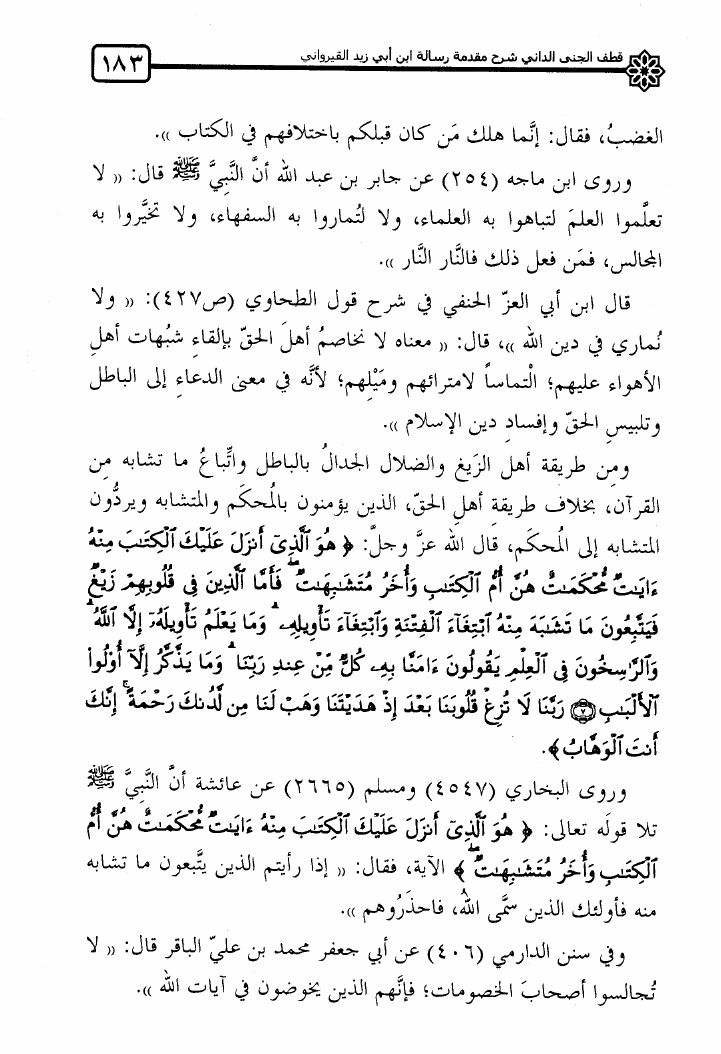 قطف الجنى الداني شرح مقدمة رسالة ابن أبي زيد القيرواني
١٨٣
الغضبُ، فقال: إنَّما هلك مَن كان قبلكم باختلافهم في الكتاب )).
وروى ابن ماجه (٢٥٤) عن جابر بن عبد الله أنَّ النَّبيَّ ﷺ قال: (( لا
تعلَّموا العلمَ لتباهوا به العلماء، ولا لتُماروا به السفهاء، ولا تخيَّروا به
المجالس، فمَن فعل ذلك فالنَّار النَّار )).
قال ابن أبي العزّ الحنفي في شرح قول الطحاوي (ص٤٢٧): (( ولا
نُماري في دين الله ))، قال: (( معناه لا نخاصمُ أهلَ الحقّ بإلقاءِ شبُهات أهلِ
الأهواء عليهم؛ الْتماساً لامترائهم ومَيْلِهم؛ لأنَّه في معنى الدعاءِ إلى الباطل
وتلبيسِ الحقّ وإفسادِ دين الإسلام )).
ومِن طريقة أهل الزَيغ والضلال الجدالُ بالباطل واتِّباعُ ما تشابه مِن
القرآن، بخلاف طريقةِ أهلِ الحقّ، الذين يؤمنون بالمُحكَم والمتشابه ويردُّون
المتشابه إلى المُحكَم، قال الله عزَّ وجلَّ: ﴿ هُوَ ٱلَّذِىٓ أَنزَلَ عَلَيْكَ ٱلْكِتَٰبَ مِنْهُ
ءَايَٰتٌ مُّحْكَمَٰتٌ هُنَّ أُمُّ ٱلْكِتَٰبِ وَأُخَرُ مُتَشَٰبِهَٰتٌ ۖ فَأَمَّا ٱلَّذِينَ فِى قُلُوبِهِمْ زَيْغٌ
فَيَتَّبِعُونَ مَا تَشَٰبَهَ مِنْهُ ٱبْتِغَآءَ ٱلْفِتْنَةِ وَٱبْتِغَآءَ تَأْوِيلِهِۦ ۗ وَمَا يَعْلَمُ تَأْوِيلَهُۥٓ إِلَّا ٱللَّهُ ۗ
وَٱلرَّٰسِخُونَ فِى ٱلْعِلْمِ يَقُولُونَ ءَامَنَّا بِهِۦ كُلٌّ مِّنْ عِندِ رَبِّنَا ۗ وَمَا يَذَّكَّرُ إِلَّآ أُو۟لُوا۟
ٱلْأَلْبَٰبِ ٧ رَبَّنَا لَا تُزِغْ قُلُوبَنَا بَعْدَ إِذْ هَدَيْتَنَا وَهَبْ لَنَا مِن لَّدُنكَ رَحْمَةً ۚ إِنَّكَ
أَنتَ ٱلْوَهَّابُ ﴾.
وروى البخاري (٤٥٤٧) ومسلم (٢٦٦٥) عن عائشة أنَّ النَّبيَّ ﷺ
تلا قولَه تعالى: ﴿ هُوَ ٱلَّذِىٓ أَنزَلَ عَلَيْكَ ٱلْكِتَٰبَ مِنْهُ ءَايَٰتٌ مُّحْكَمَٰتٌ هُنَّ أُمُّ
ٱلْكِتَٰبِ وَأُخَرُ مُتَشَٰبِهَٰتٌ ۖ ﴾ الآية، فقال: (( إذا رأيتم الذين يتَّبعون ما تشابه
منه فأولئك الذين سمَّى اللهُ، فاحذَرُوهم )).
وفي سنن الدارمي (٤٠٦) عن أبي جعفر محمد بن عليّ الباقر قال: (( لا
تُجالسوا أصحابَ الخصومات؛ فإنَّهم الذين يخوضون في آيات الله )).